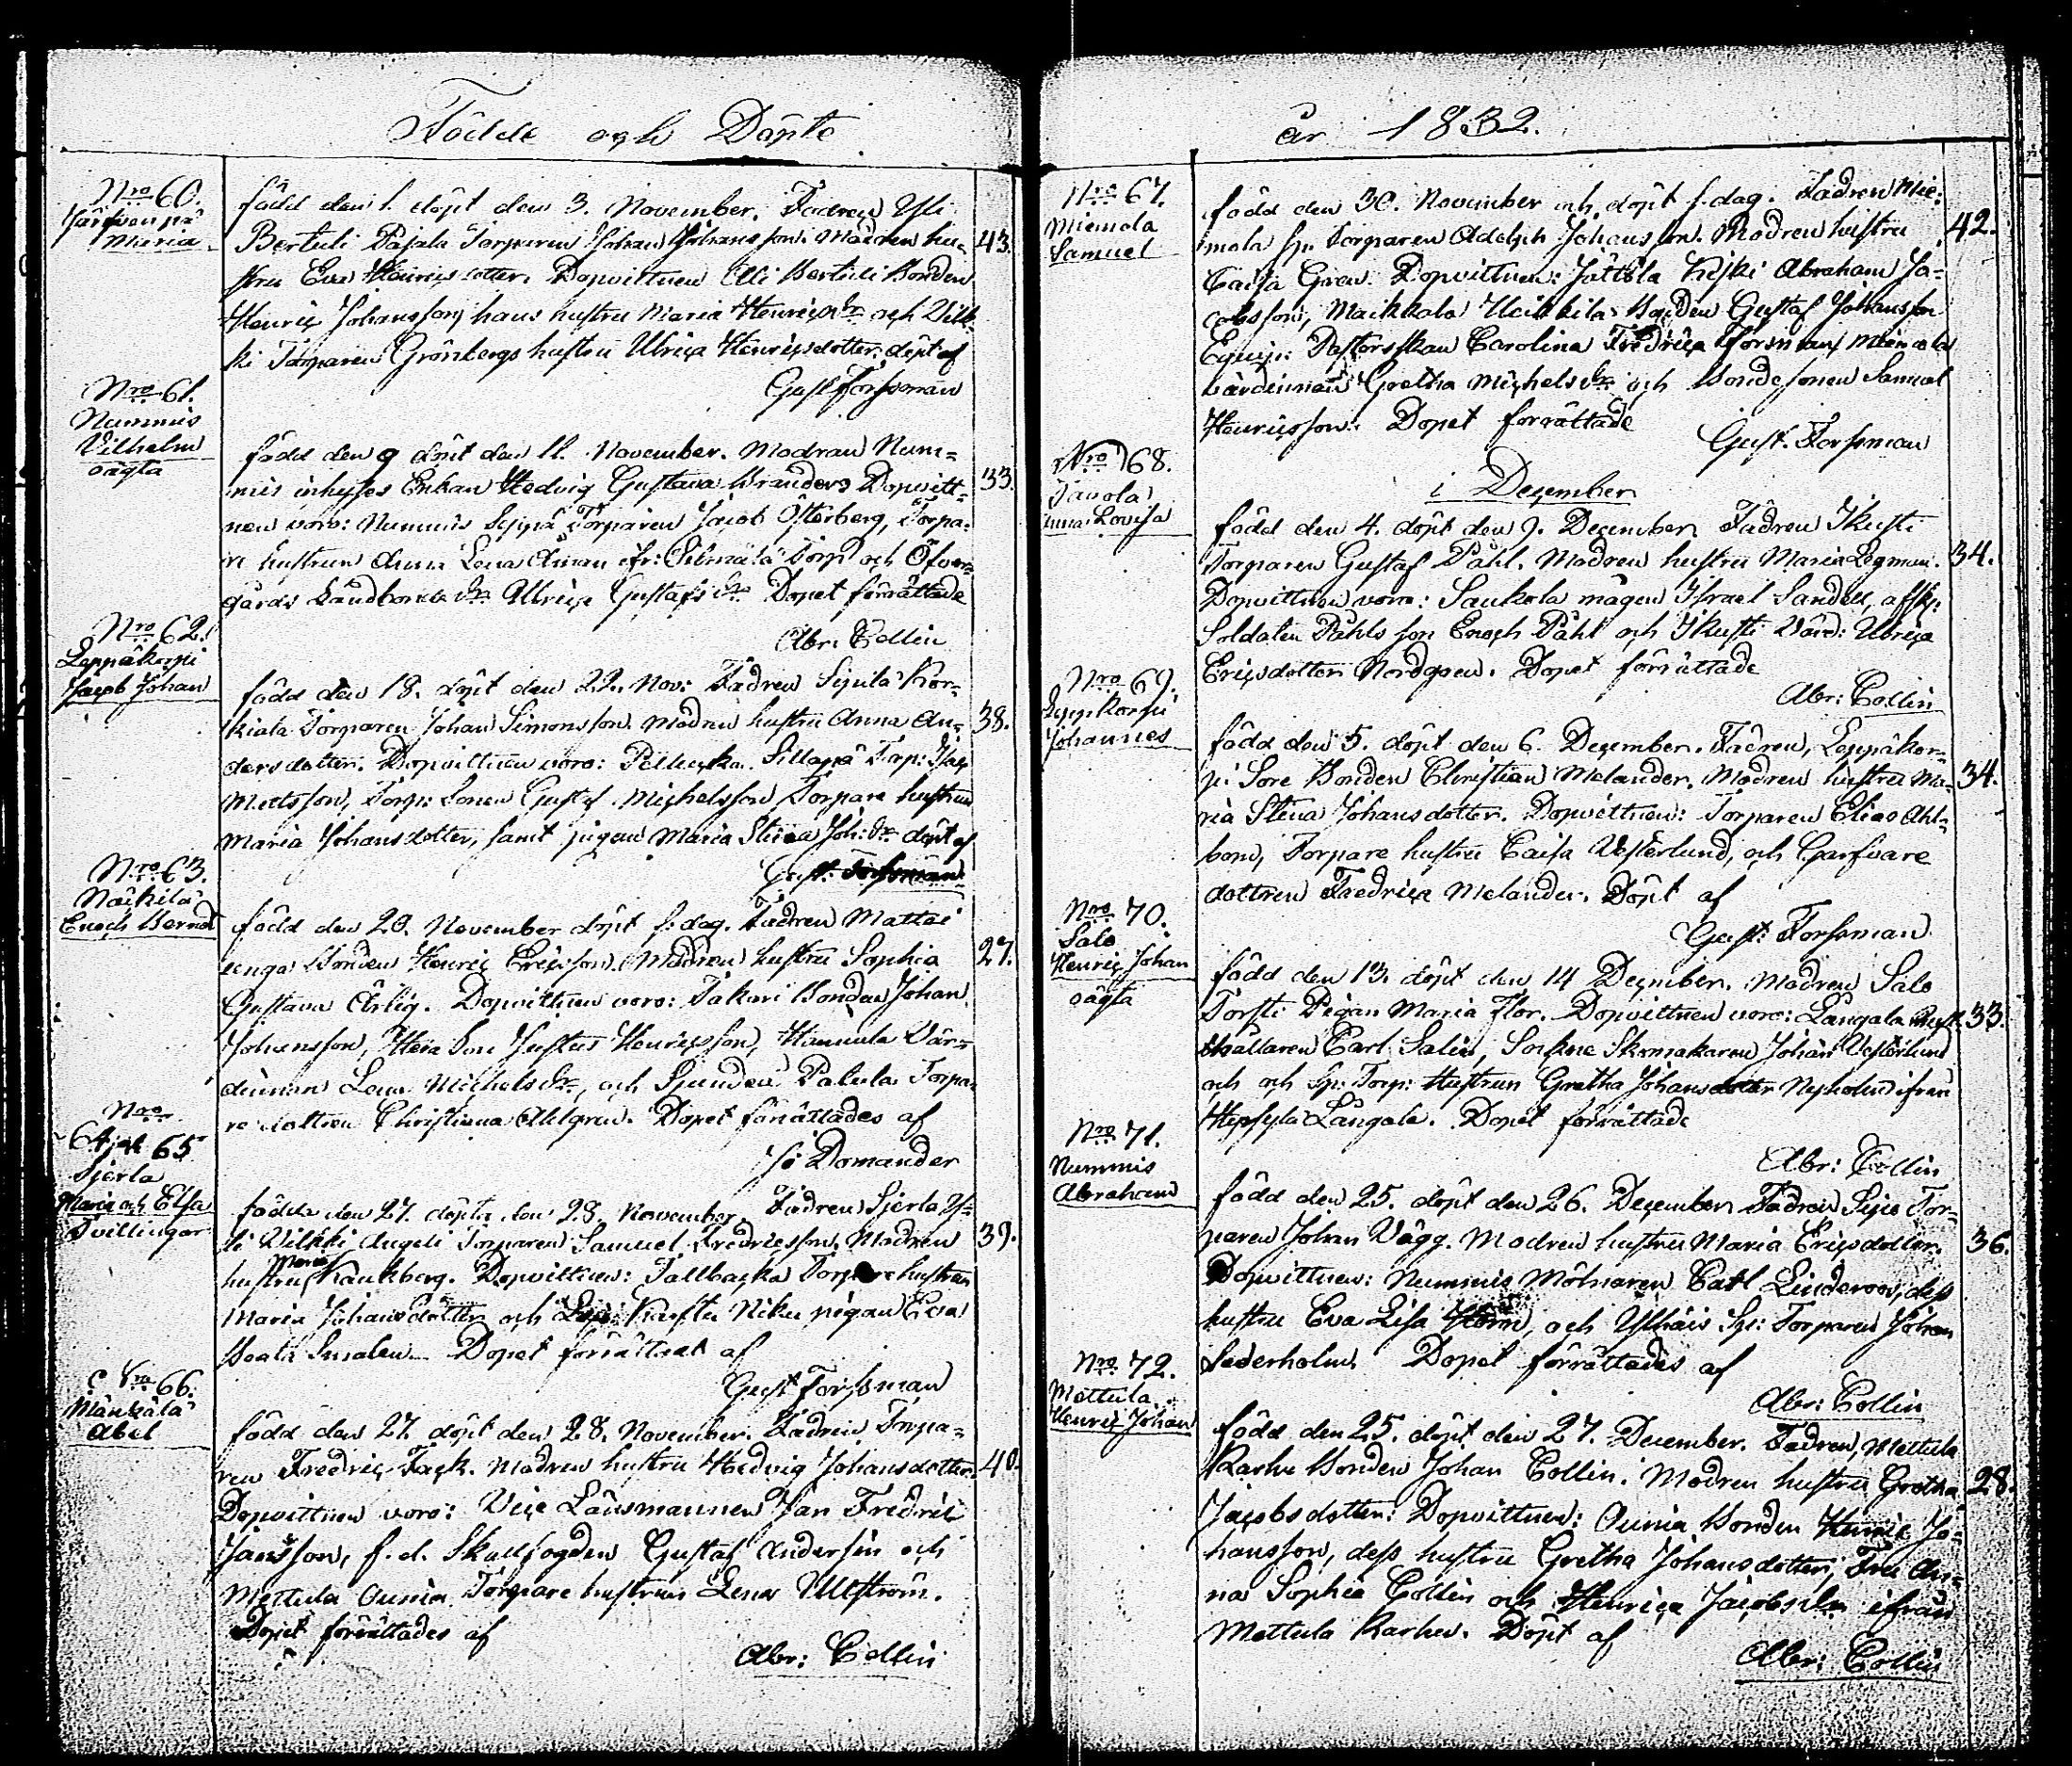 Födde och Döpte
Nro 60.
Maria
född den 1. döpt den 3. November. Fadren Yli
Bertuli Pajala Torparen Johan Johansson. Modren hu-
stru Eva Henricsdotter. Dopvittnen Ali Bertuli Bonden
Henric Johansson, hans hustru Maria Henricsdr och Vilk-
ki Torparen Grönbergs hustru Ulrica Henricsdotter. döpt af
Gust Forssman
43.
Nro 61.
Nummis
Vilhelm
oägta
född den 9 döpt den 11. November. Modran Num-
mis inhyses Enkan Hedvig Gustava Branders Dopvitt-
nen voro: Nummis Seppä Torparen Jacob Österberg, Torpa-
re hustrun Anna Lena Öman ifr: Torp och Öfver-
gårds Landbonde dr Ulrica Gustafs dr Dopet förrättade
Abr: Collin
33.
Nro 62.
Leppäkorpi
Jacob Johan
född den 18. döpt den 22. Nov: Fadren Sipilä Kor-
kiala Torparen Johan Simonsson. Modren hustru Anna An-
dersdotter. Dopvittnen voro: Pelluska Sillapä Torp: Jac
Mattsson, Torp: Sonen Gustaf Michelsson Torpare hustrun
Maria Johansdotter, samt pigan Maria Stina Joh: dr döpt af
Gust: Forssman
38.
Nro 63.
Näckilä
Enoch Bernd
född den 20. November döpt s. dag. Fadren Mattas
unga Bonden Henric Ericsson. Modren hustru Sophia
Gustava Ärlig. Dopvittnen voro: Takari Bonden Johan
Johansson, Heia Son Justus Henricsson, Hannula Vär-
dinnan Lena Michels dr, och Sjundeå Palula Torpa-
re dottren Christina Ahlgren. Dopet förrättades af
Jo Domander
27.
Nro
64 och 65
Sjerla
Maria och Elsa
Tvillingar
födda den 27. döpta den 28. November Fadren Sjerla Y-
li Vilkki Angeli Torparen Samuel Fredricsson, Modren
hustru Maria Kankberg. Dopvittnen: Tallbacka Torpare hustrun
Maria Johansdotter och Kasta Niku pigan Eva
Beata Dopet förrättat af
Gust Forssman
39.
Nro 66.
Mänkälä
Abel
född den 27. döpt den 28. November. Fadren Torpa-
ren Fredric Fack. Modren hustru Hedvig Johansdotter
Dopvittnen voro: Vice Länsmannen Jan Fredric
Jansson, f. d. Skallfogden Gustaf Andersin och
Mettula Ounia Torpare hustrun Lena Ullström.
Dopet förrättades af
Abr: Collin
40.
år 1832.
Nro 67.
Miemola
Samuel
född den 30. November och döpt s. dag. Fadren Mie-
mola sp. Torparen Adolph Johansson. Modren hustru
Caisa Gren. Dopvittnen: Jättölä Heiki Abraham Ja-
cobsson, Maikkala Heikkilä Bonden Gustaf Johansson
Equip: Pastorskan Carolina Fredrica Forsman, Miemola
värdinnan Gretha Michels dr och Bondesonen Samuel
Henricsson. Dopet förrättade
Gust. Forssman
42.
i December
Nro 68.
Tavola
Anna Lovisa
född den 4. döpt den 9. December Fadren Ikusti
Torparen Gustaf Påhl. Modren hustru Maria Legman.
Dopvittnen voro: Saukola mågen Israel Sandell, afsk:
Soldaten Påhls son Enoch Påhl och Ikusti Värd: Ulrica
Ericsdotter Nordgren. Dopet förrättade
Abr: Collin
34.
Nro 69.
Leppkorpi
Johannes
född den 5. döpt den 6. December. Fadren, Leppäkor-
pi Sore Bonden Christian Melander. Modren hustru Ma-
ria Stina Johansdotter. Dopvittnen: Torparen Elias Ahl-
bom, Torpare hustru Caisa Vesterlund, och Garfvare
dottren Fredrica Melander. Döpt af
Gust: Forssman
34.
Nro 70.
Salo
Henric Johan
oägta
född den 13. döpt den 14 December. Modren Salo
Torsti Pigan Maria Flor. Dopvittnen voro: Långala Rust-
hållaren Carl Salin, Sockne Skomakaren Johan Vesterlund
och och Sp: Torp: Hustrun Gretha Johansdotter Nyholm ifrån
Långala. Dopet förrättade
Abr: Collin
33.
Nro 71.
Nummis
Abraham
född den 25. döpt den 26. December Fadren Tor-
paren Johan Vägg. Modren hustru Maria Ericsdotter.
Dopvittnen: Nummis Mölnaren Carl Linderoos, dess
hustru Eva Lisa och Sp: Torparen Johan
Sederholm. Dopet förrättades af
Abr: Collin
36.
Nro 72.
Mettula
Henric Johan
född den 25. döpt den 27. December. Fadren, Mettula
Karhu Bonden Johan Collin. Modren hustru Gretha
Jacobsdotter. Dopvittnen: Ounia Bonden Henric Jo-
hansson, dess hustru Gretha Johansdotter, Fru An-
na Sophia Collin och Henrica Jacobsdr ifrån
Mettula Karhu. Döpt af
Abr: Collin
28.